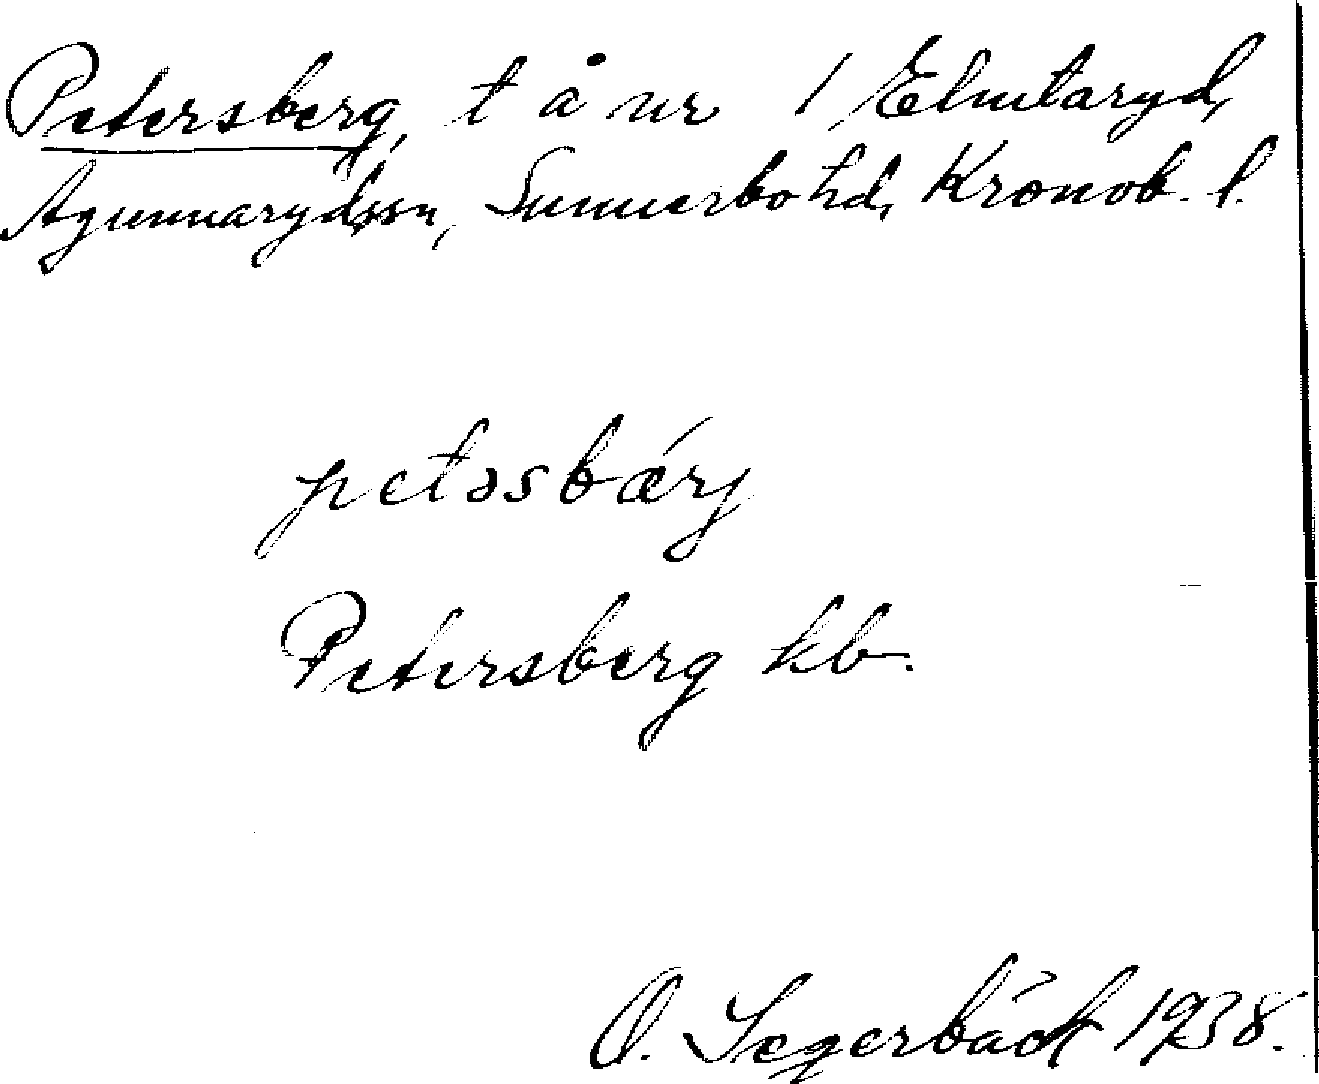 Petersberg, t å nr 1 Elmtaryd,
Agunnarydssn, Sunnerbo hd, Kronob. l.
petəsbærj
Petersberg kb.
O. Segerbäck 1938.